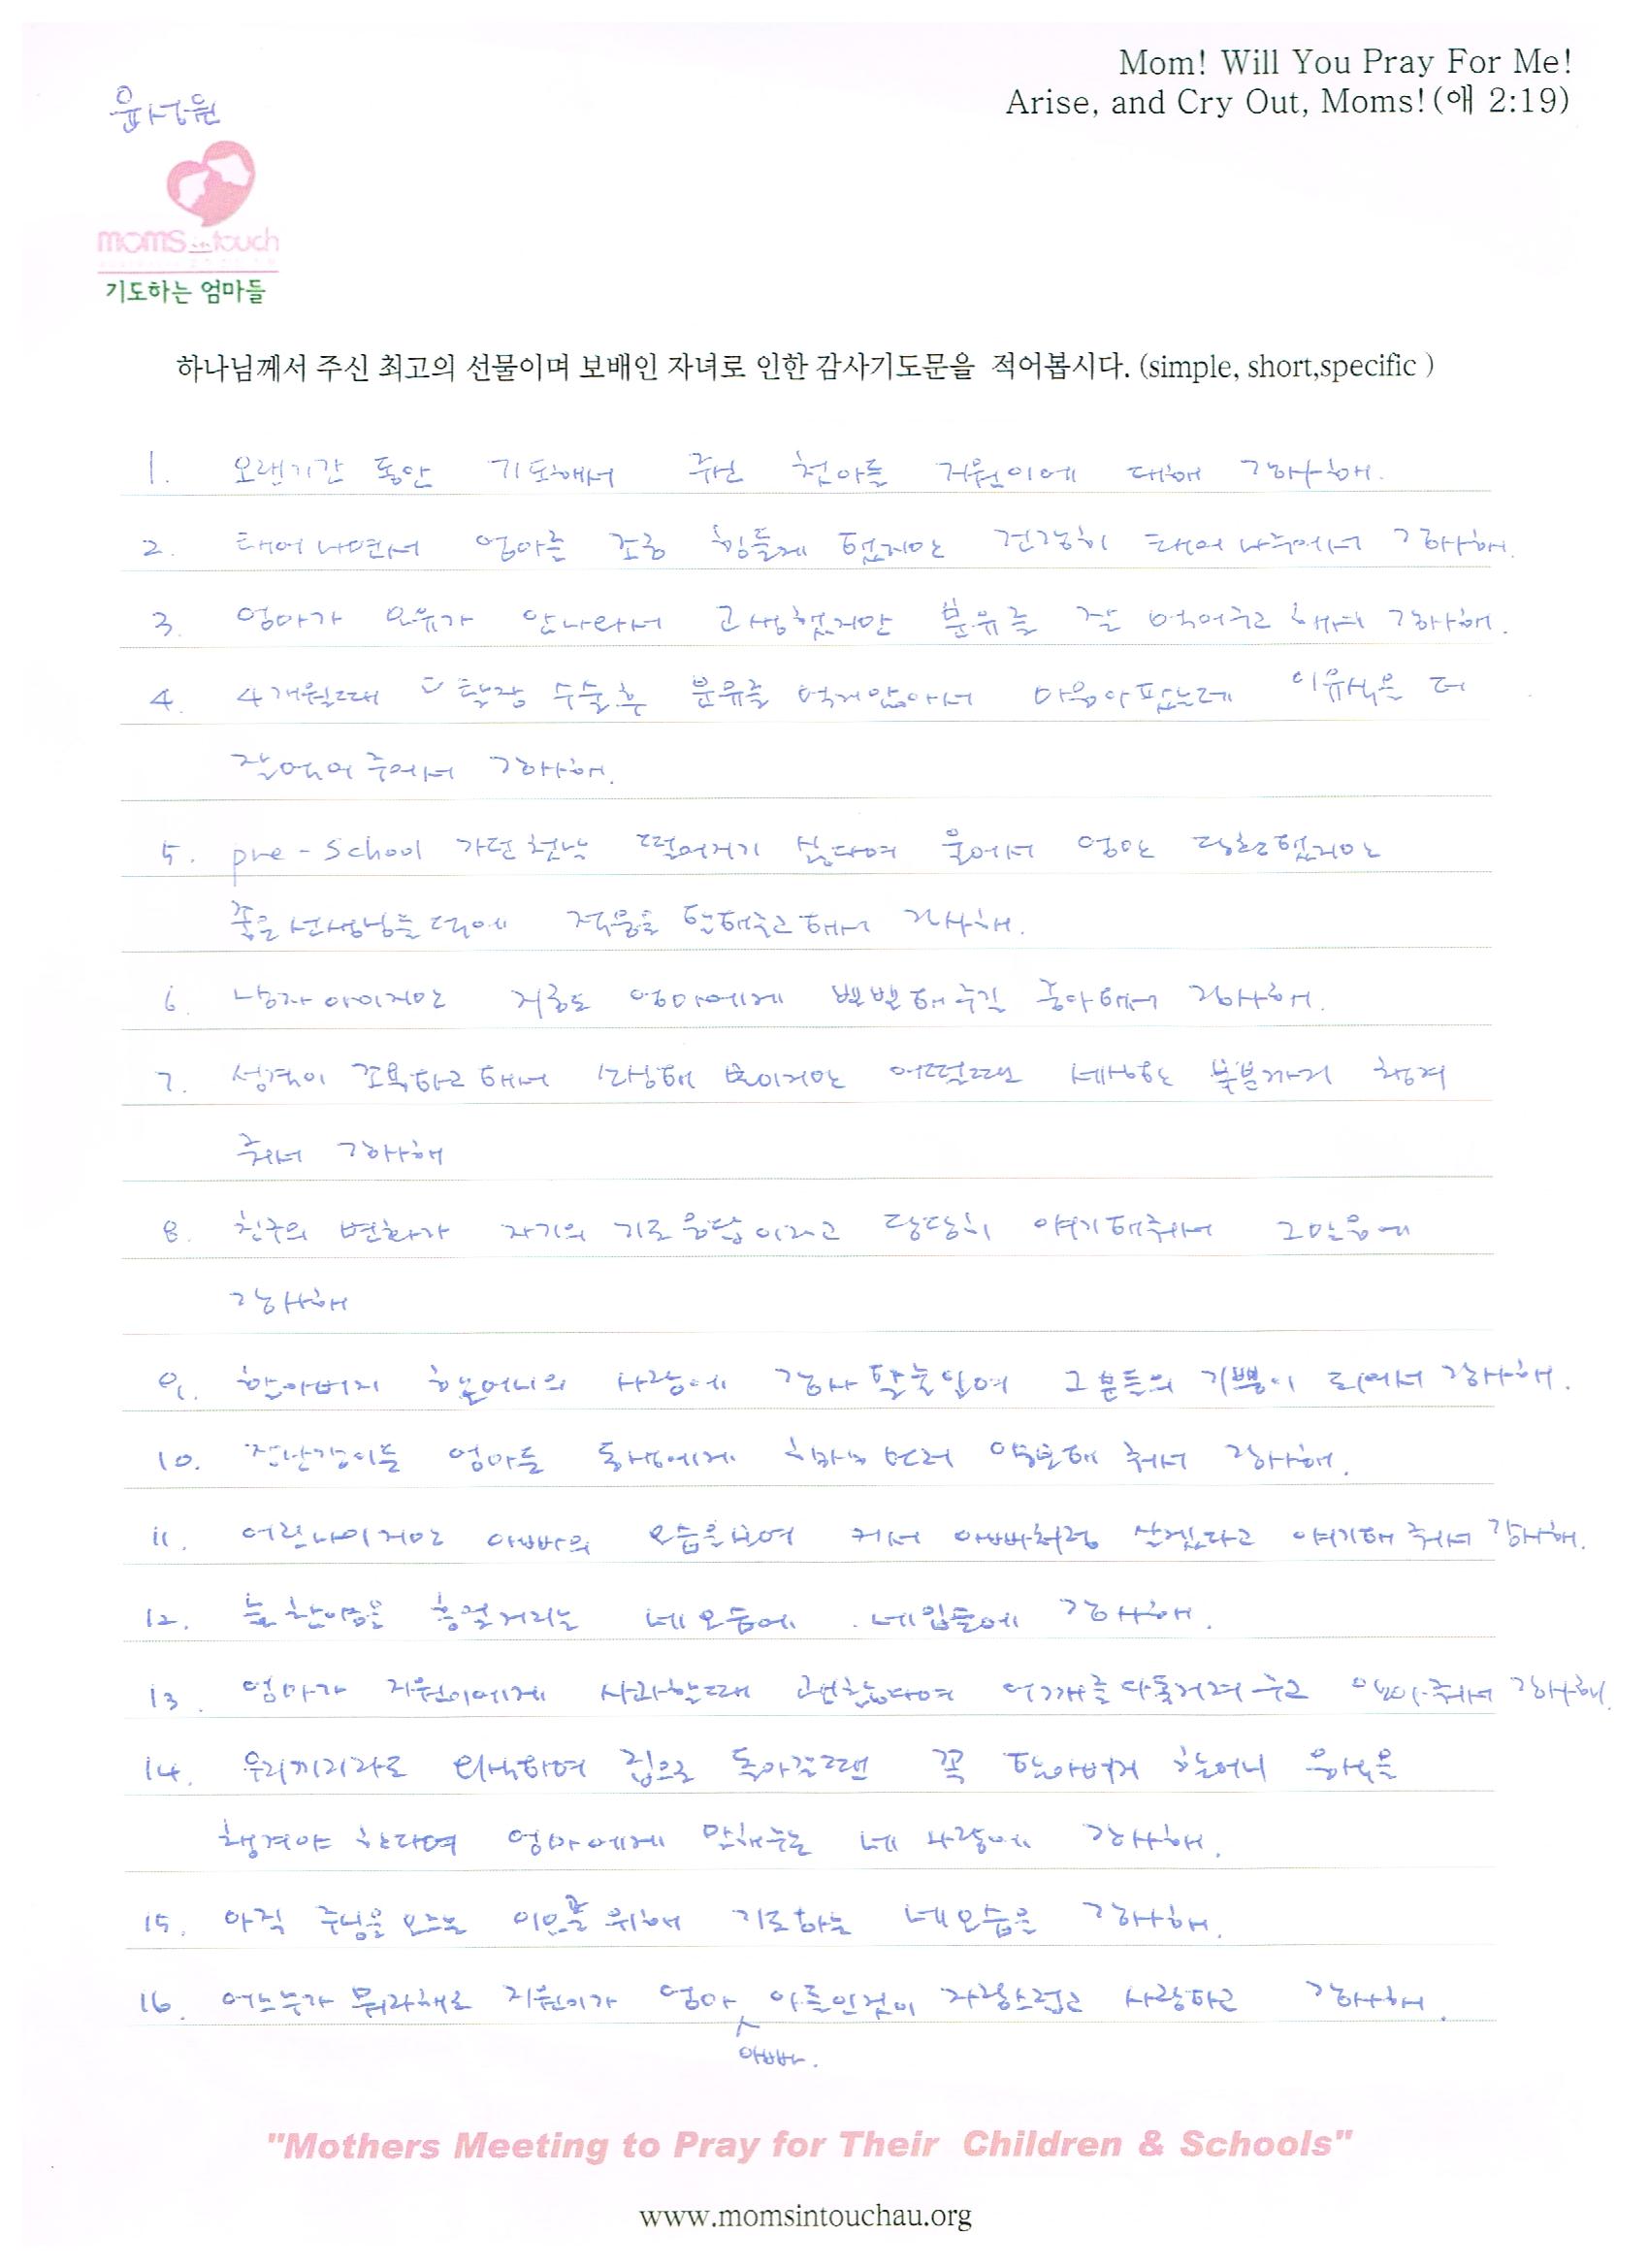 Mom! Will You Pray For Me!
Arise, and Cry Out, Moms!(애 2:19)
윤성원
moms in touch
기도하는 엄마들
하나님께서 주신 최고의 선물이며 보배인 자녀로 인한 감사기도문을 적어봅시다. (simple, short,specific )
1. 오랜기간 동안 기도해서 주신 첫아들 지원이에 대해 감사해.
2. 태어나면서 엄마를 조금 힘들게 했지만 건강히 태어나주어서 감사해.
3. 엄마가 모유가 안나와서 고생했지만 분유를 잘 먹어주고 해서 감사해.
4. 4개월때 탈장 수술후 분유를 먹지않아서 마음아팠는데 이유식은 더
잘먹어주어서 감사해.
5. pre-school 가던첫날 떨어지기 싫다며 울어서 엄만 당황했지만
좋은선생님들덕에 적응을 잘해주고해서 감사해.
6. 남자아이지만 지금도 엄마에게 뽀뽀해주길 좋아해서 감사해.
7. 성격이 꼬목하고해서 보이지만 어떨땐 세심한 부분까지 챙겨
줘서 감사해
8. 친구의 변화가 자기의 기도응답이라고 당당히 얘기해줘서 그믿음에
감사해
9. 할아버지 할머니의 사랑에 감사할줄알며 그분들의 기쁨이 되어서 감사해.
10. 장난감이든 엄마든 동생에게 먼저 양보해 줘서 감사해.
11. 어린나이지만 아빠의 모습을보며 커서 아빠처럼 살겠다고 얘기해 줘서 감사해.
12. 늘 찬양을 흥얼거리는 네모습에 네입술에 감사해.
13. 엄마가 지원이에게 사과할때 괜찮다며 어깨를다독거려주고 안아줘서 감사해.
14. 우리끼리라도 외식하며 집으로 돌아갈땐 꼭 할아버지 할머니 음식을
챙겨야 한다며 엄마에게 말해주는 네 사랑에 감사해.
15. 아직 주님을 모르는 이모를 위해 기도하는 네모습을 감사해.
16. 어느누가 뭐라해도 지원이가 엄마 아들인것이 자랑스럽고 사랑하고 감사해.
아빠.
"Mothers Meeting to Pray for Their Children & Schools"
www.momsintouchau.org